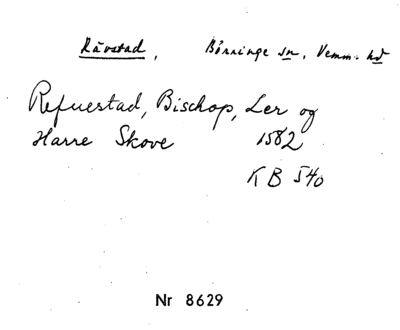 Rävstad, Börringe sn, Vemm. hd
Refuestad, Bischop, Ler og
Harre Skove 1582
KB 540
Nr 8629